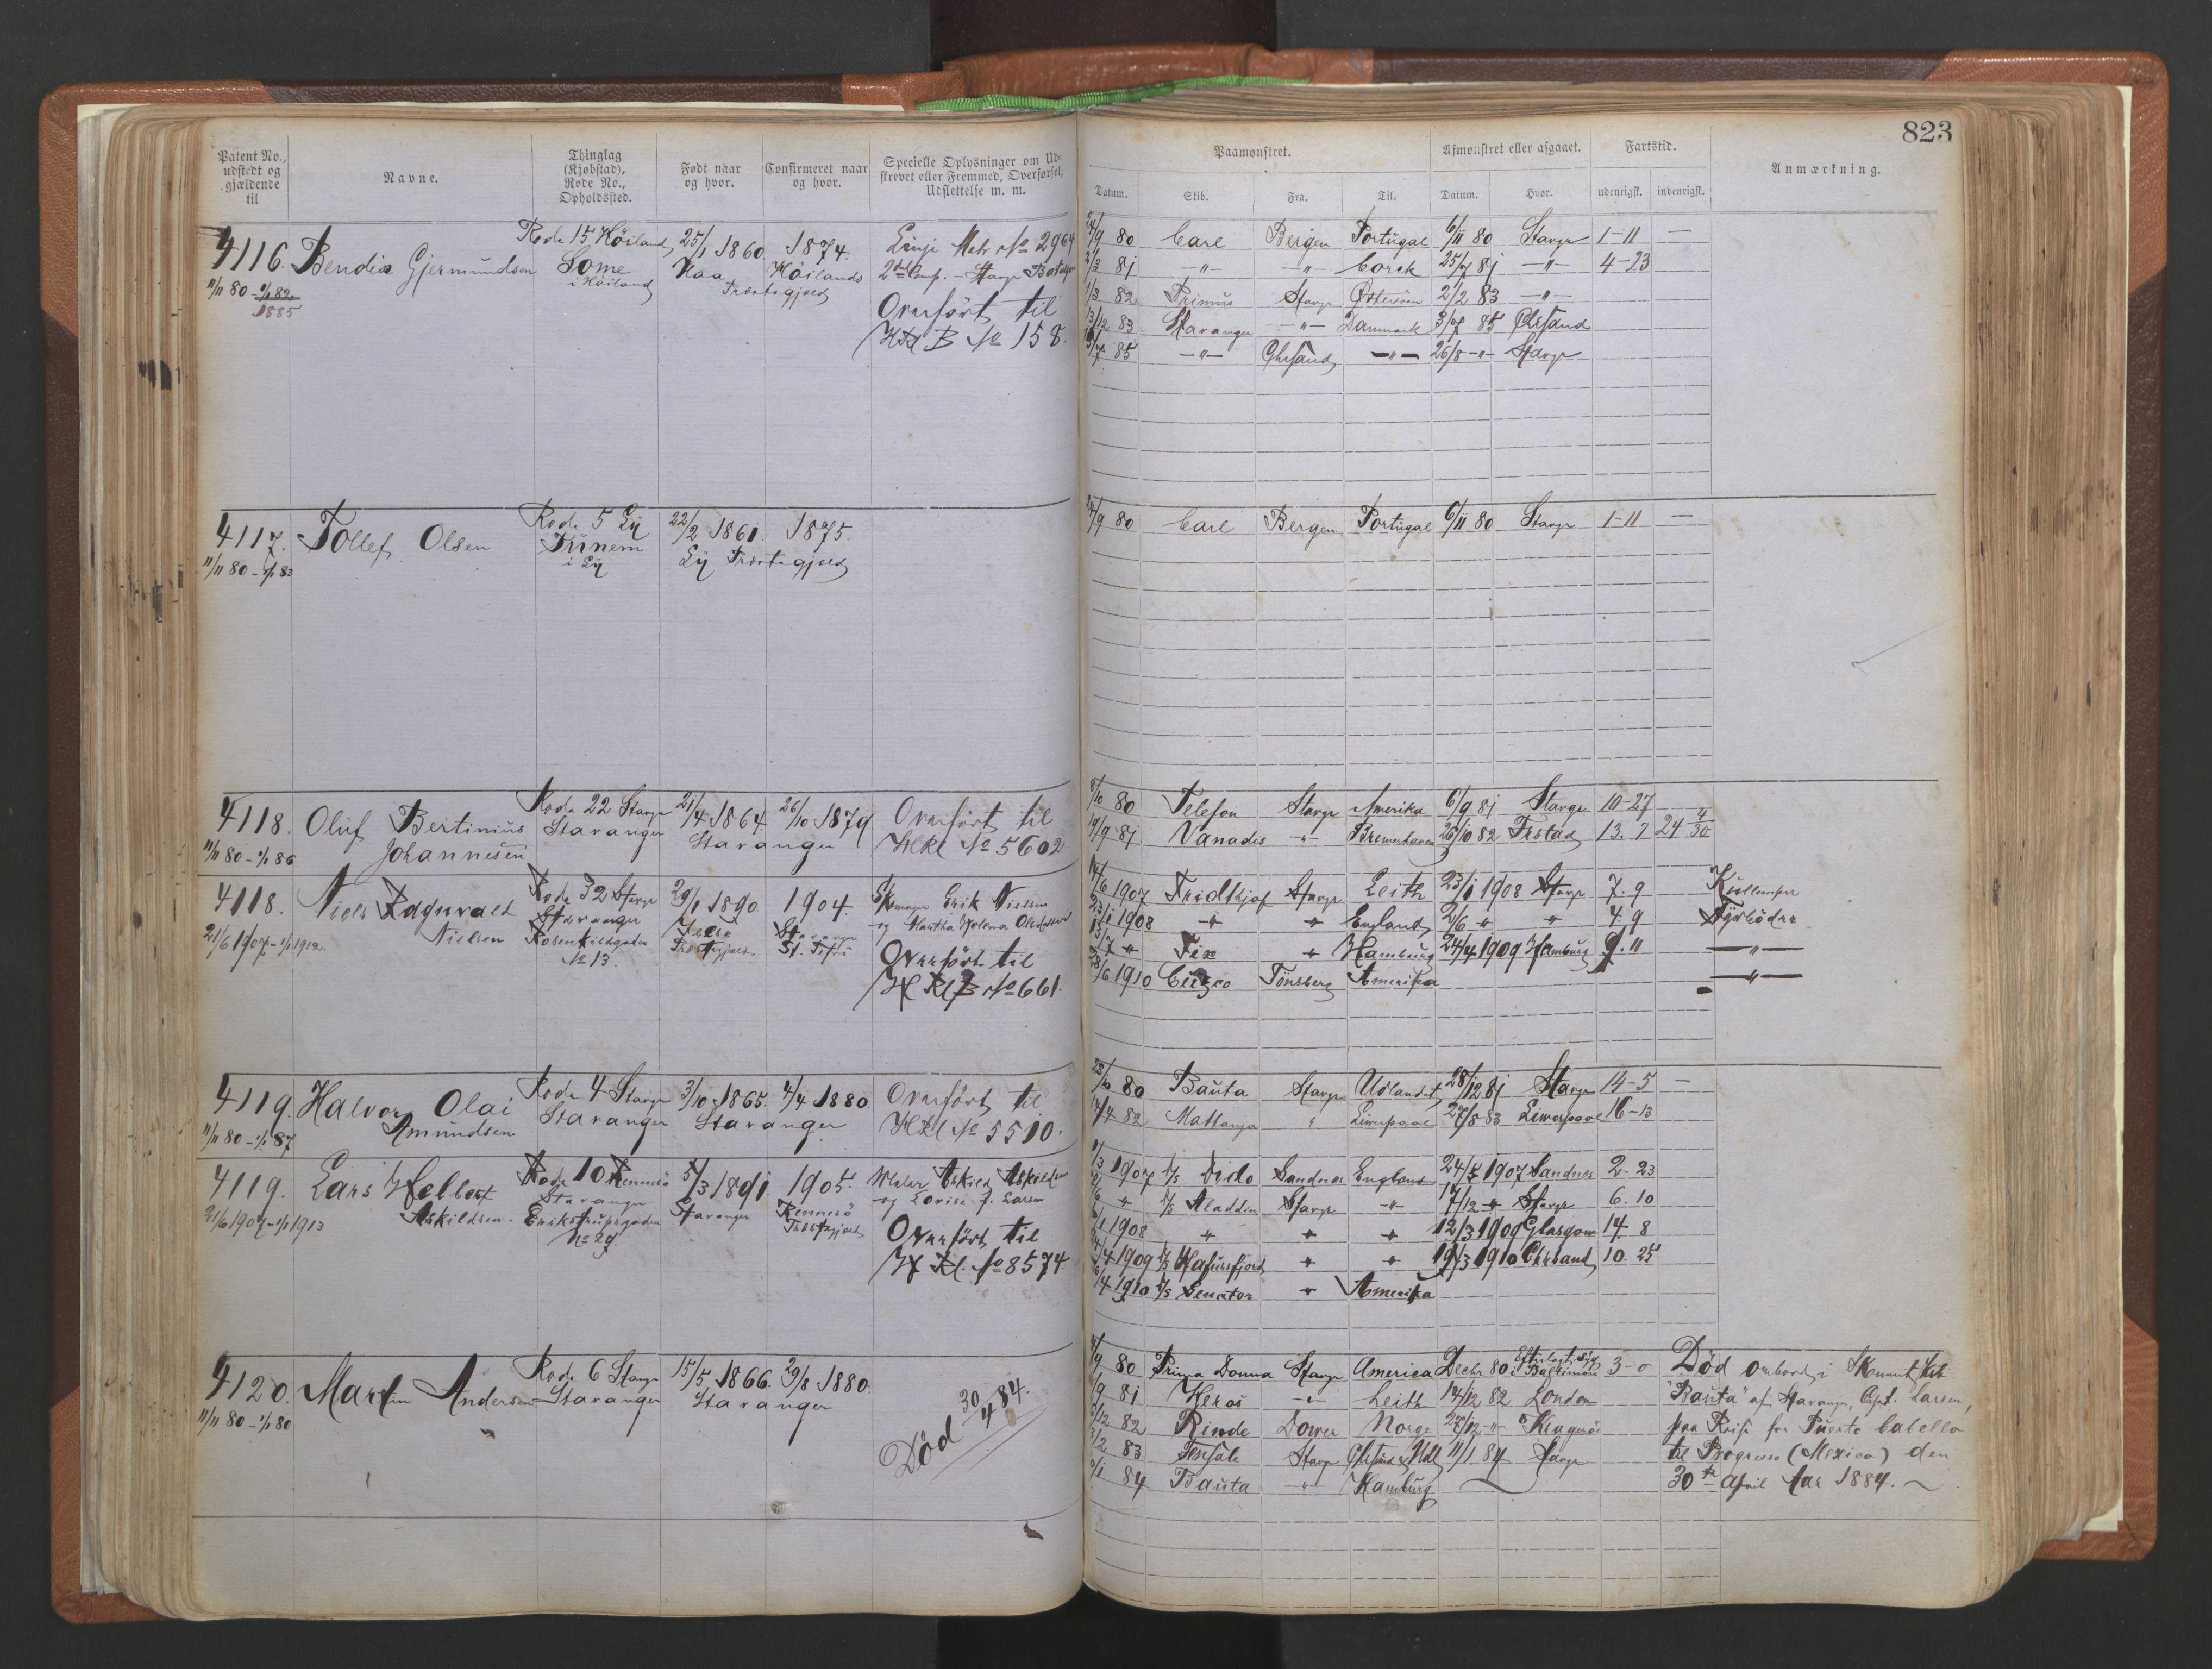 823
Patent No., udstedt og gjældende til
Navne.
Thinglag (Kjøbstad), Rode No., Opholdssted.
Født naar og hvor.
Confirmeret naar og hvor.
Specielle Oplysninger om Udskrevet eller Fremmed, Overførsel, Udslettelse m. m.
Paamønstret.
Afmønstret eller afgaaet.
Fartstid.
Anmærkning.
Datum. Skib. Fra. Til. Datum. Hvor. udenrigsk. indenrigsk.
4116. Gjermundsen Rode 15 Høiland 25/1 1860. 1874.
11/11 80 - 1/1 82 Some Høilands
1885 i Høiland Præstegjeld
Overført til
No 158.
24/9 80 Carl Bergen Portugal 6/11 80 Stavgr 1-11 —
81 -"- -"- Corck -"- 4-23
1/3 82 Primus Stavgr Østersøen 2/2 83 -"-
13/12 83 Stavanger -"- Danmark 85 Chrsand
85 -"- Chrsand -"- 26/8 -"- Stavgr
4117. Tollef Olsen Rode 5 Ly 22/2 1861. 1875.
11/11 80 - 1/1 83 Tunem Ly Præstegjeld
i Ly
24/9 80 Carl Bergen Portugal 6/11 80 Stavgr 1-11 —
4118. Oluf Bertinius Rode 22 Stavgr 21/4 1864. 26/10 1879 Overført til
11/11 80 - 1/1 86 Johannesen Stavanger Stavanger No 5602
8/10 80 Telefon Stavgr Amerika 6/9 81 Stavgr 10-27
19/9 81 Vanadis -"- Bremerhaven 26/10 82 Frstad 13. 7 24 4/30
4118. Niels Ragnvald Rode 32 Stavgr 29/1 1890 1904. Erik Nielsen
21/6 1907 - 1/1 1912 Nielsen Stavanger Stavanger og Martha Helena
Rosenkildgaden Præstegjeld St. Petri Overført til
No 13. No 661.
14/6 1907 Fridthjof Stavgr Leith 23/1 1908 Stavgr 7. 9
23/1 1908 " " England 2/6 " " 4. 9 Fyrbøder
" " Hamburg 24/4 1909 Hamburg 9. 11 —"—
1910 Cuzco Tønsberg Amerika —"—
4119. Halvor Olai Rode 4 Stavgr 3/10 1865. 4/4 1880. Overført til
11/11 80 - 1/1 87 Amundsen Stavanger Stavanger No 5510.
23/10 80 Bauta Stavgr Udlandet 28/12 81 Stavgr 14-5 —
14/4 82 Mattanja " Liverpool 27/8 83 Liverpool 16-13
4119. Lars Askildsen. Rode 10 Rennesø 5/3 1891. 1905. Askild Askildsen
21/6 1907 - 1/1 1913 Stavanger Stavanger Rennesø og Lovise f. Larsen
Erikstrupsgaden Præstegjeld Overført til
No 29. No 8574
1907 D/S Dido Sandnes England 1907 Sandnes 2. 23
" D/S Aladdin Stavgr -"- 17/12 " Stavgr 6. 10
1908 " " " 12/3 1909 Glasgow 14. 8
1909 D/S Hafursfjord " " 19/3 1910 Chrsand 10. 25
1910 D/S Senator " Amerika
4120. Martin Andersen Rode 6 Stavgr 15/5 1866. 29/8 1880.
11/11 80 - 1/1 80 Stavanger Stavanger
Død 30/4 84.
80 Prima Donna Stavgr America Decbr 80 i Baltimore 3-0
81 Heros -"- Leith 14/12 82 London
82 Rinde Dower Norge -"- Kragerø
83 Stavgr 11/1 84 Stavgr
84 Bauta -"- Hamburg
Død ombord i
"Bauta" af Stavanger, Capt. Larsen,
paa Reise fra Puerto Cabello
til Progresso (Mexico) den
30te April Aar 1884.